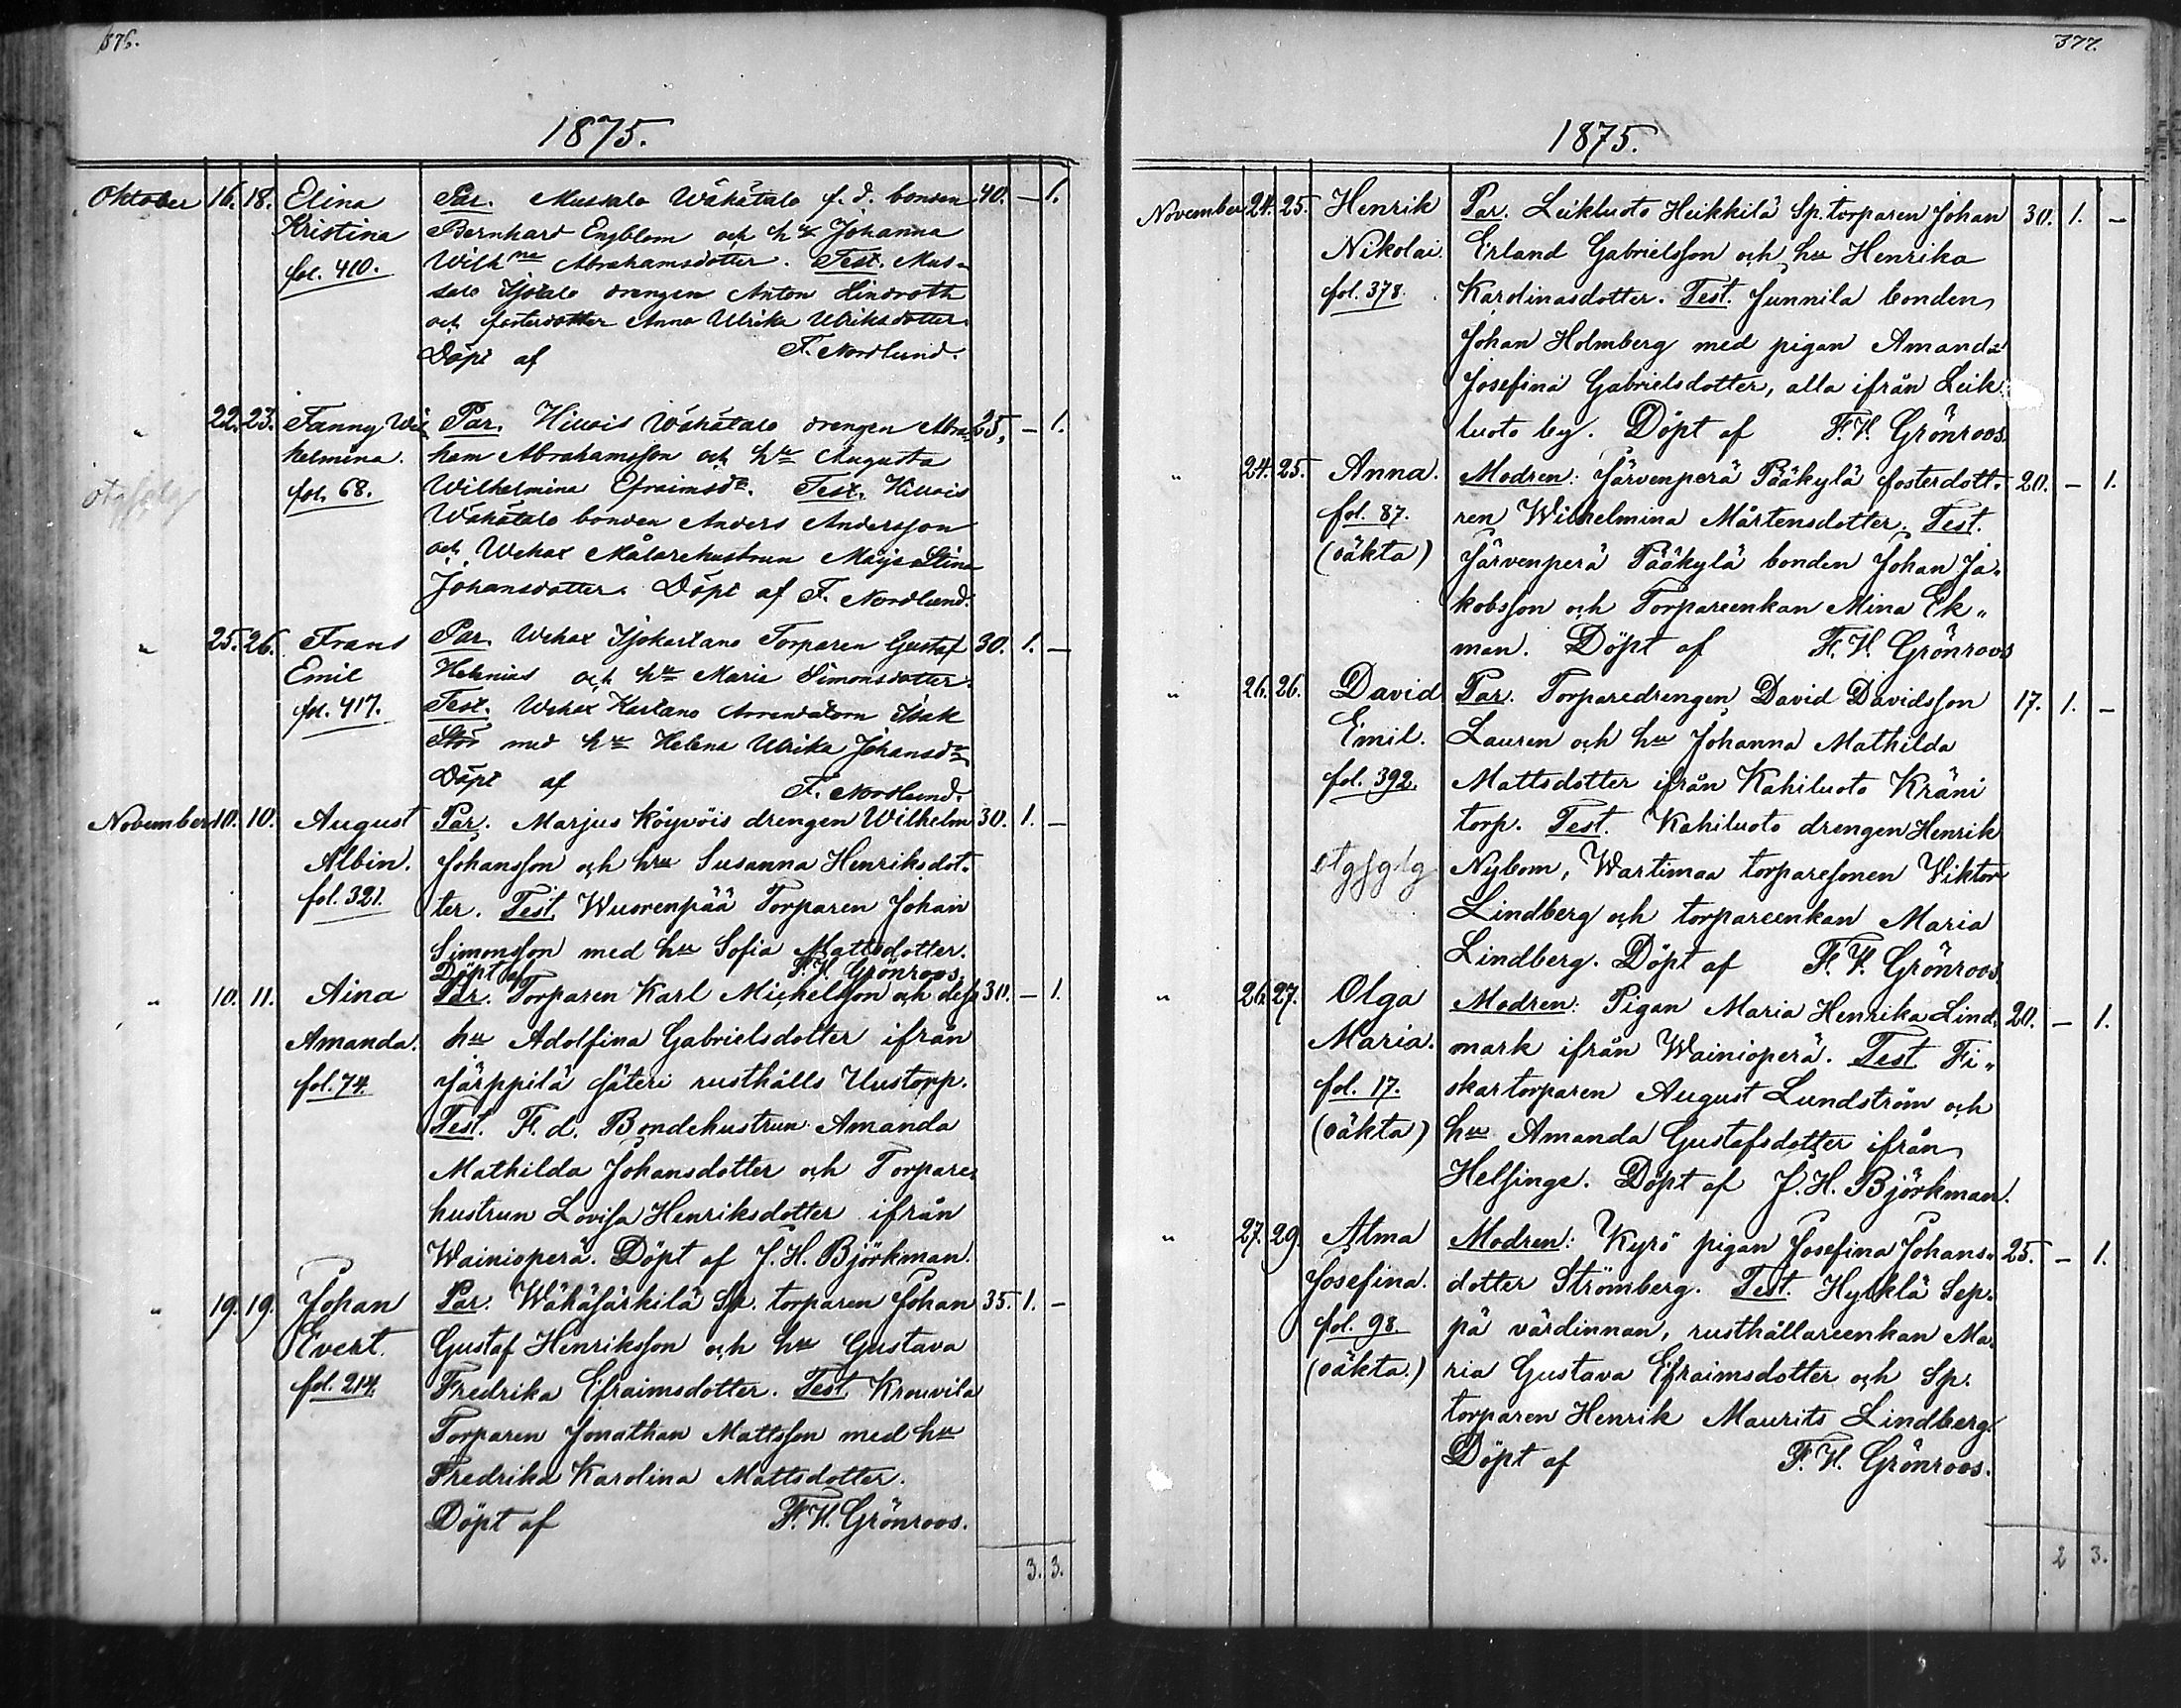 376.
1875.
Oktober 16. 18. Elina Par. Mussalo Wähätalo f. d. bonden 40. — 1.
Kristina Bernhard Engblom och hu Johanna
fol. 410. Wilhna Abrahamsdotter. Test. Mus-
salo Isotalo drengen Anton Lindroth
och fosterdotter Anna Ulrika Ulriksdotter
Döpt af F. Nordlund.
" 22. 23. Fanny Wil Par. Hillois Wähätalo drengen Abra- 25. — 1.
helmina. ham Abrahamsson och hu Augusta
fol. 68. Wilhelmina Efraimsdr. Test. Hillois
Wähätalo bonden Anders Andersson
och Wehax Målarehustrun Maja Stina
Johansdotter. Döpt af F. Nordlund.
" 25. 26. Frans Par. Wehax Isokartano Torparen Gustaf 30. 1. —
Emil Helenius och hu Maria Simonsdotter.
fol. 417. Test. Wehax Kartano Arrendatorn Isak
Stör med hu Helena Ulrika Johansdr
Döpt af F. Nordlund.
November 10. 10. August Par. Marjus Köyvöis drengen Wilhelm 30. 1. —
Albin. Johansson och hu Susanna Henriksdot-
fol. 321. ter. Test. Wuorenpää Torparen Johan
Simonsson med hu Sofia Mattsdotter.
Döpt af F. V. Grönroos.
" 10. 11. Aina Par. Torparen Karl Michelsson och dess 30. — 1.
Amanda. hu Adolfina Gabrielsdotter ifrån
fol. 74. Järppilä säteri rusthålls Uustorp.
Test. F. d. Bondehustrun Amanda
Mathilda Johansdotter och Torpare-
hustrun Lovisa Henriksdotter ifrån
Wainioperä. Döpt af J. H. Björkman.
" 19. 19. Johan Par. Wähäsärkilä Sp. torparen Johan 35. 1. —
Evert. Gustaf Henriksson och hu Gustava
fol. 214. Fredrika Efraimsdotter. Test. Krouvila
Torparen Jonathan Mattsson med hu
Fredrika Karolina Mattsdotter.
Döpt af F. V. Grönroos.
3. 3.
377.
1875.
November 24. 25. Henrik Par. Leikluoto Heikkilä Sp. torparen Johan 30. 1. —
Nikolai. Erland Gabrielsson och hu Henrika
fol. 378. Karolinasdotter. Test. Junnila bonden
Johan Holmberg med pigan Amanda
Josefina Gabrielsdotter, alla ifrån Leik-
luoto by. Döpt af F. V. Grönroos.
" 24. 25. Anna. Modren: Järvenperä Pääkylä fosterdott- 20. — 1.
fol. 87. ren Wilhelmina Mårtensdotter. Test.
(oäkta) Järvenperä Pääkylä bonden Johan Ja-
kobsson och Torpareenkan Mina Ek-
man. Döpt af F. V. Grönroos
" 26. 26. David Par. Torparedrengen David Davidsson 17. 1. —
Emil. Lauren och hu Johanna Mathilda
fol. 392. Mattsdotter ifrån Kahiluoto Kräni
torp. Test. Kahiluoto drengen Henrik
Nybom, Wartimaa torparesonen Viktor
Lindberg och torpareenkan Maria
Lindberg. Döpt af F. V. Grönroos.
" 26. 27. Olga Modren: Pigan Maria Henrika Lind- 20. — 1.
Maria. mark ifrån Wainioperä. Test. Fi-
fol. 17. skartorparen August Lundström och
(oäkta) hu Amanda Gustafsdotter ifrån
Helsinge. Döpt af J. H. Björkman.
" 27. 29. Alma Modren: Kyrö pigan Josefina Johans- 25. — 1.
Josefina. dotter Strömberg. Test. Hylklä Sep-
fol. 98. pä värdinnan, rusthållareenkan Ma-
(oäkta.) ria Gustava Efraimsdotter och Sp.
torparen Henrik Maurits Lindberg.
Döpt af F. V. Grönroos.
2 3.